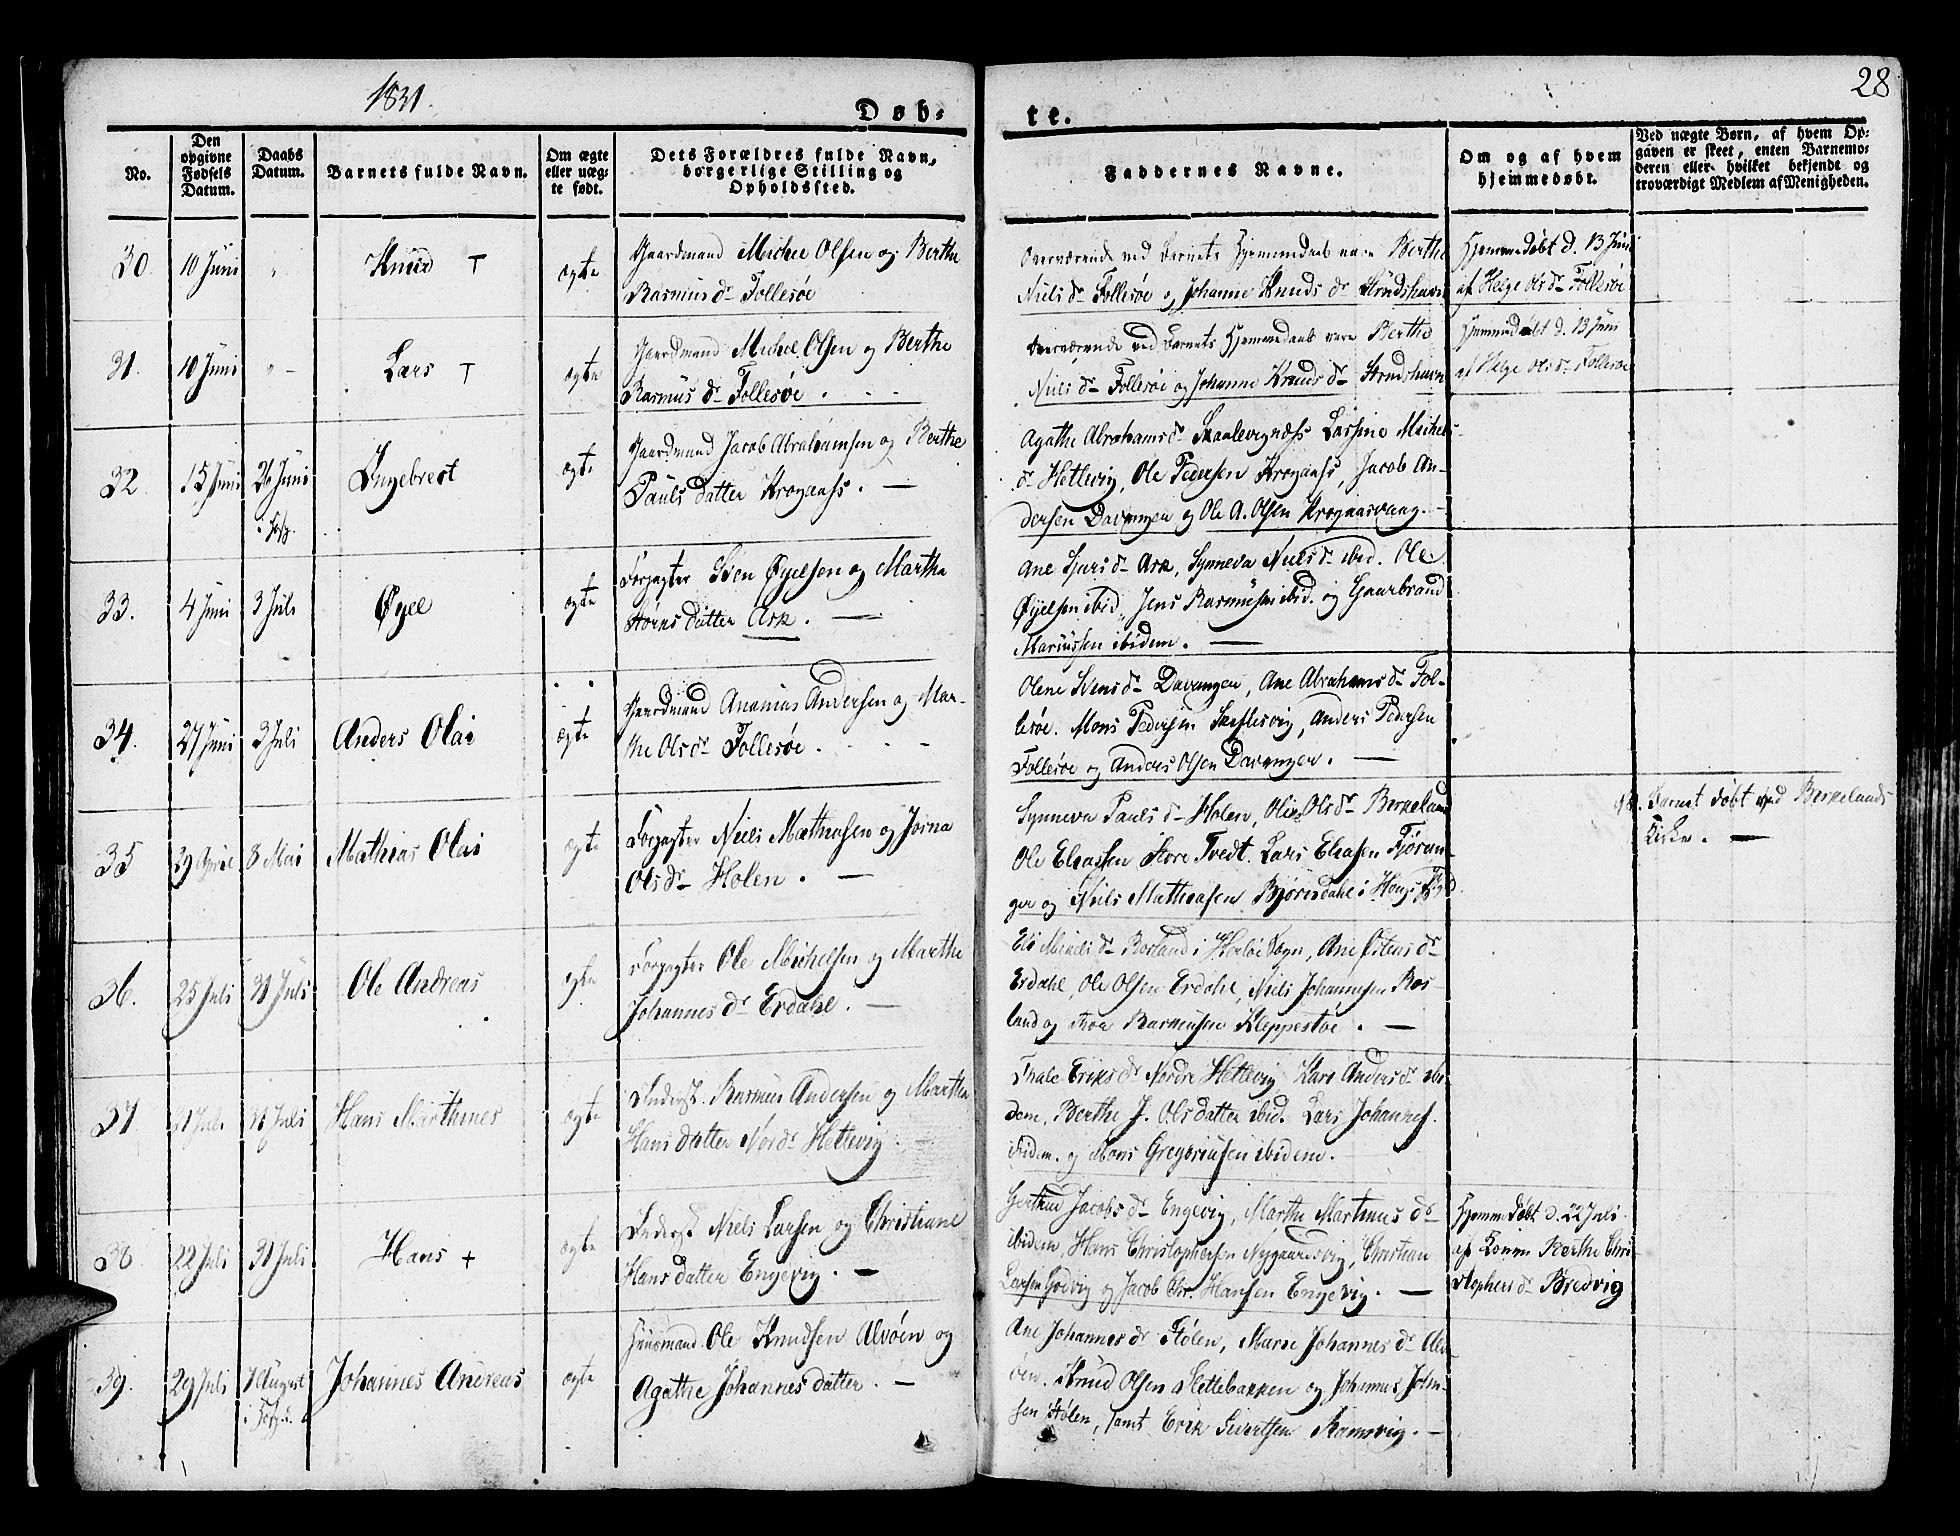 1831.
28
Døb-
te.
No.
Den opgivne Fødsels Datum.
Daabs Datum.
Barnets fulde Navn.
Om ægte eller uægte født.
Dets Forældres fulde Navn, borgerlige Stilling og Opholdssted.
Faddernes Navne.
Om og af hvem hjemmedøbt.
Ved uægte Børn, af hvem Opgaven er skeet, enten Barnemoderen eller hvilket bekjendt og troværdigt Medlem af Menigheden.
30. 10 Juni " Knud † ægte
Gaardmand Michel Olsen og Berthe
Rasmus dr Follesøe
Overværende ved Barnets Hjemmedaab vare Berthe
Niels dr Follesøe og Johanne Knuds dr Strudshavn
Hjemmedøbt d. 13 Juni
af Helge Ols dr Follesøe
31. 10 Juni " Lars † ægte
Gaardmand Michel Olsen og Berthe
Rasmus dr Follesøe.
Overværende ved Barnets Hjemmedaab vare Berthe
Niels dr Follesøe og Johanne Knuds dr Strudshavn
Hjemmedøbt d. 13 Juni
af Helge Ols dr Follesøe
32. 15 Juni 26 Juni Ingebrect ægte
Gaardmand Jacob Abrahamsen og Berthe
Pauls datter Krogaass.
Agathe Abrahams dr Skaalevignæss Lassine Michels
dr Hetlevig, Ole Pedersen Krogaass, Jacob An-
dersen Davangen og Ole A. Olsen Krognæsvaag.
33. 4 Juni 3 Juli Øyel ægte
Forpagter Sven Øyelsen og Martha
Størks datter Ask.
Ane Sjurs dr Ask, Synneva Niels dr ibid. Ole
Øyelsen ibid, Jens Rasmussen ibid. og Gaarbrand
Mariussen ibidem.
34. 27 Juni 3 Juli Anders Olai ægte
Gaardmand Ananias Andersen og Mar-
the Ols dr Follesøe.
Olene Svens dr Davangen, Ane Abrahams dr Fol-
lesøe. Mons Pedersen Skiflesvig, Anders Pedersen
Follesøe og Anders Olsen Davangen.
35 29 April 8 Mai Mathias Olai ægte
Forpagter Niels Mathiasen og Jorna
Ols dr Holen.
Synneva Pauls dr Holen, Oline Ols dr Berkeland
Ole Eliassen Store Tvedt. Lars Eliasen Fjøsan-
ger og Niels Mathiasen Bjørndahl i Hougs
Barnet døbt ved Berkelands
Kirke.
36. 25 Juli 31 Juli Ole Andreas ægte
Forpagter Ole Michelsen og Marthe
Johannes dr Erdahl.
Eli Niels dr Rosland i Herløe Sogn, Ane Østens dr
Erdahl, Ole Olsen Erdahl, Niels Johannesen Ros-
land og Rasmussen Kleppestøe.
37 Juli 31 Juli Hans Marthines ægte
Inderst. Rasmus Andersen og Martha
Hans datter Nordr Hetlevig.
Thale Eriks dr Nordre Hetlevig Kari Anders dr ibi-
dem, Berthe J. Ols datter ibid. Lars Johannes.
ibidem. og Mons Gregoriusen ibidem.
38 22 Juli 31 Juli Hans † ægte
Inderst Niels Larsen og Christiane
Hans datter Engevig.
Gerthrud Jacobs dr Engevig, Martha Martinus dr
ibidem, Hans Christophersen Nygaardsvig, Christian
Larsen Godvig og Jacob Chr. Hansen Engevig.
Hjemmedøbt d. 22 Juli
af Konen Berthe Chri-
stophers dr Bredvig
39. 29 Juli 7 August Johannes Andreas ægte
Huusmand Ole Knudsen Alvøen og
Agathe Johannes datter.
Ane Johannes dr Stølen, Marie Johannes dr Alv-
øen. Knud Olsen Slettebakken og Johannes John-
sen Stølen, samt Erik Sivertsen Ramsvig.